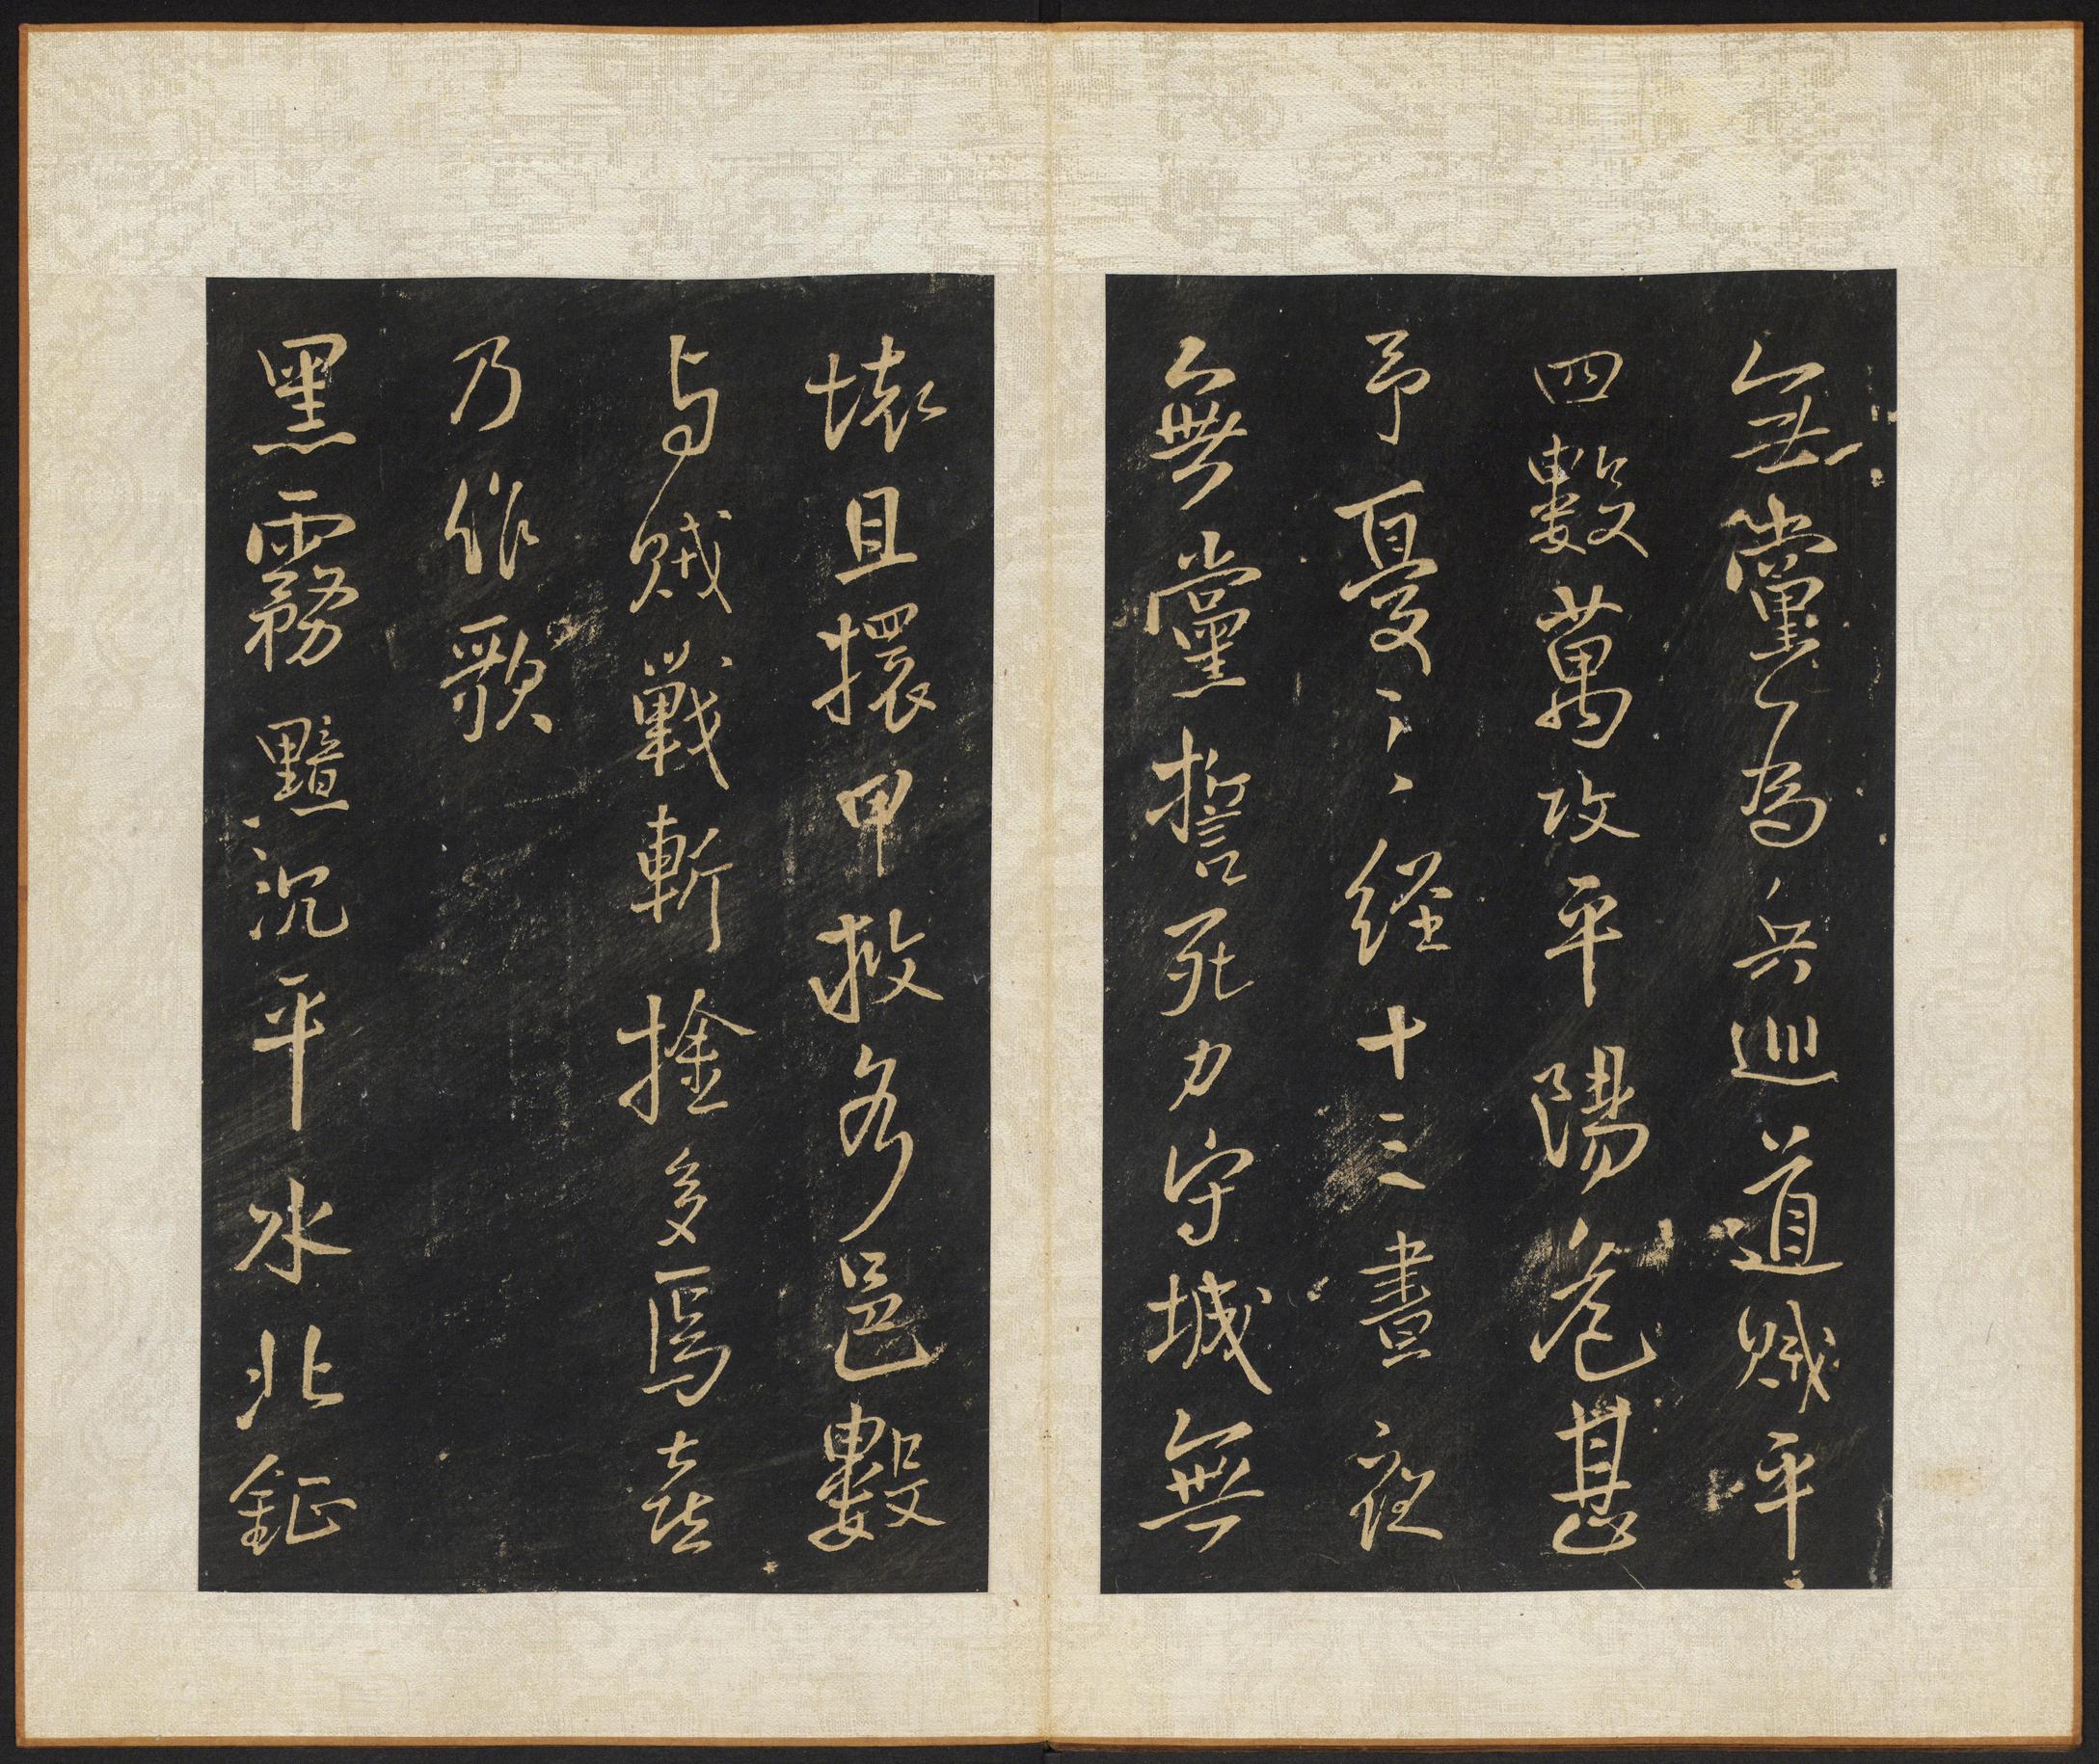 無黨為兵巡道賊平
四數萬攻平陽危甚
予憂之經十三晝夜
無黨誓死力守城無
壞且擐甲救各邑數
与賊戰斬捦多焉喜
乃作歌
黑霧黯沉平水北鉦